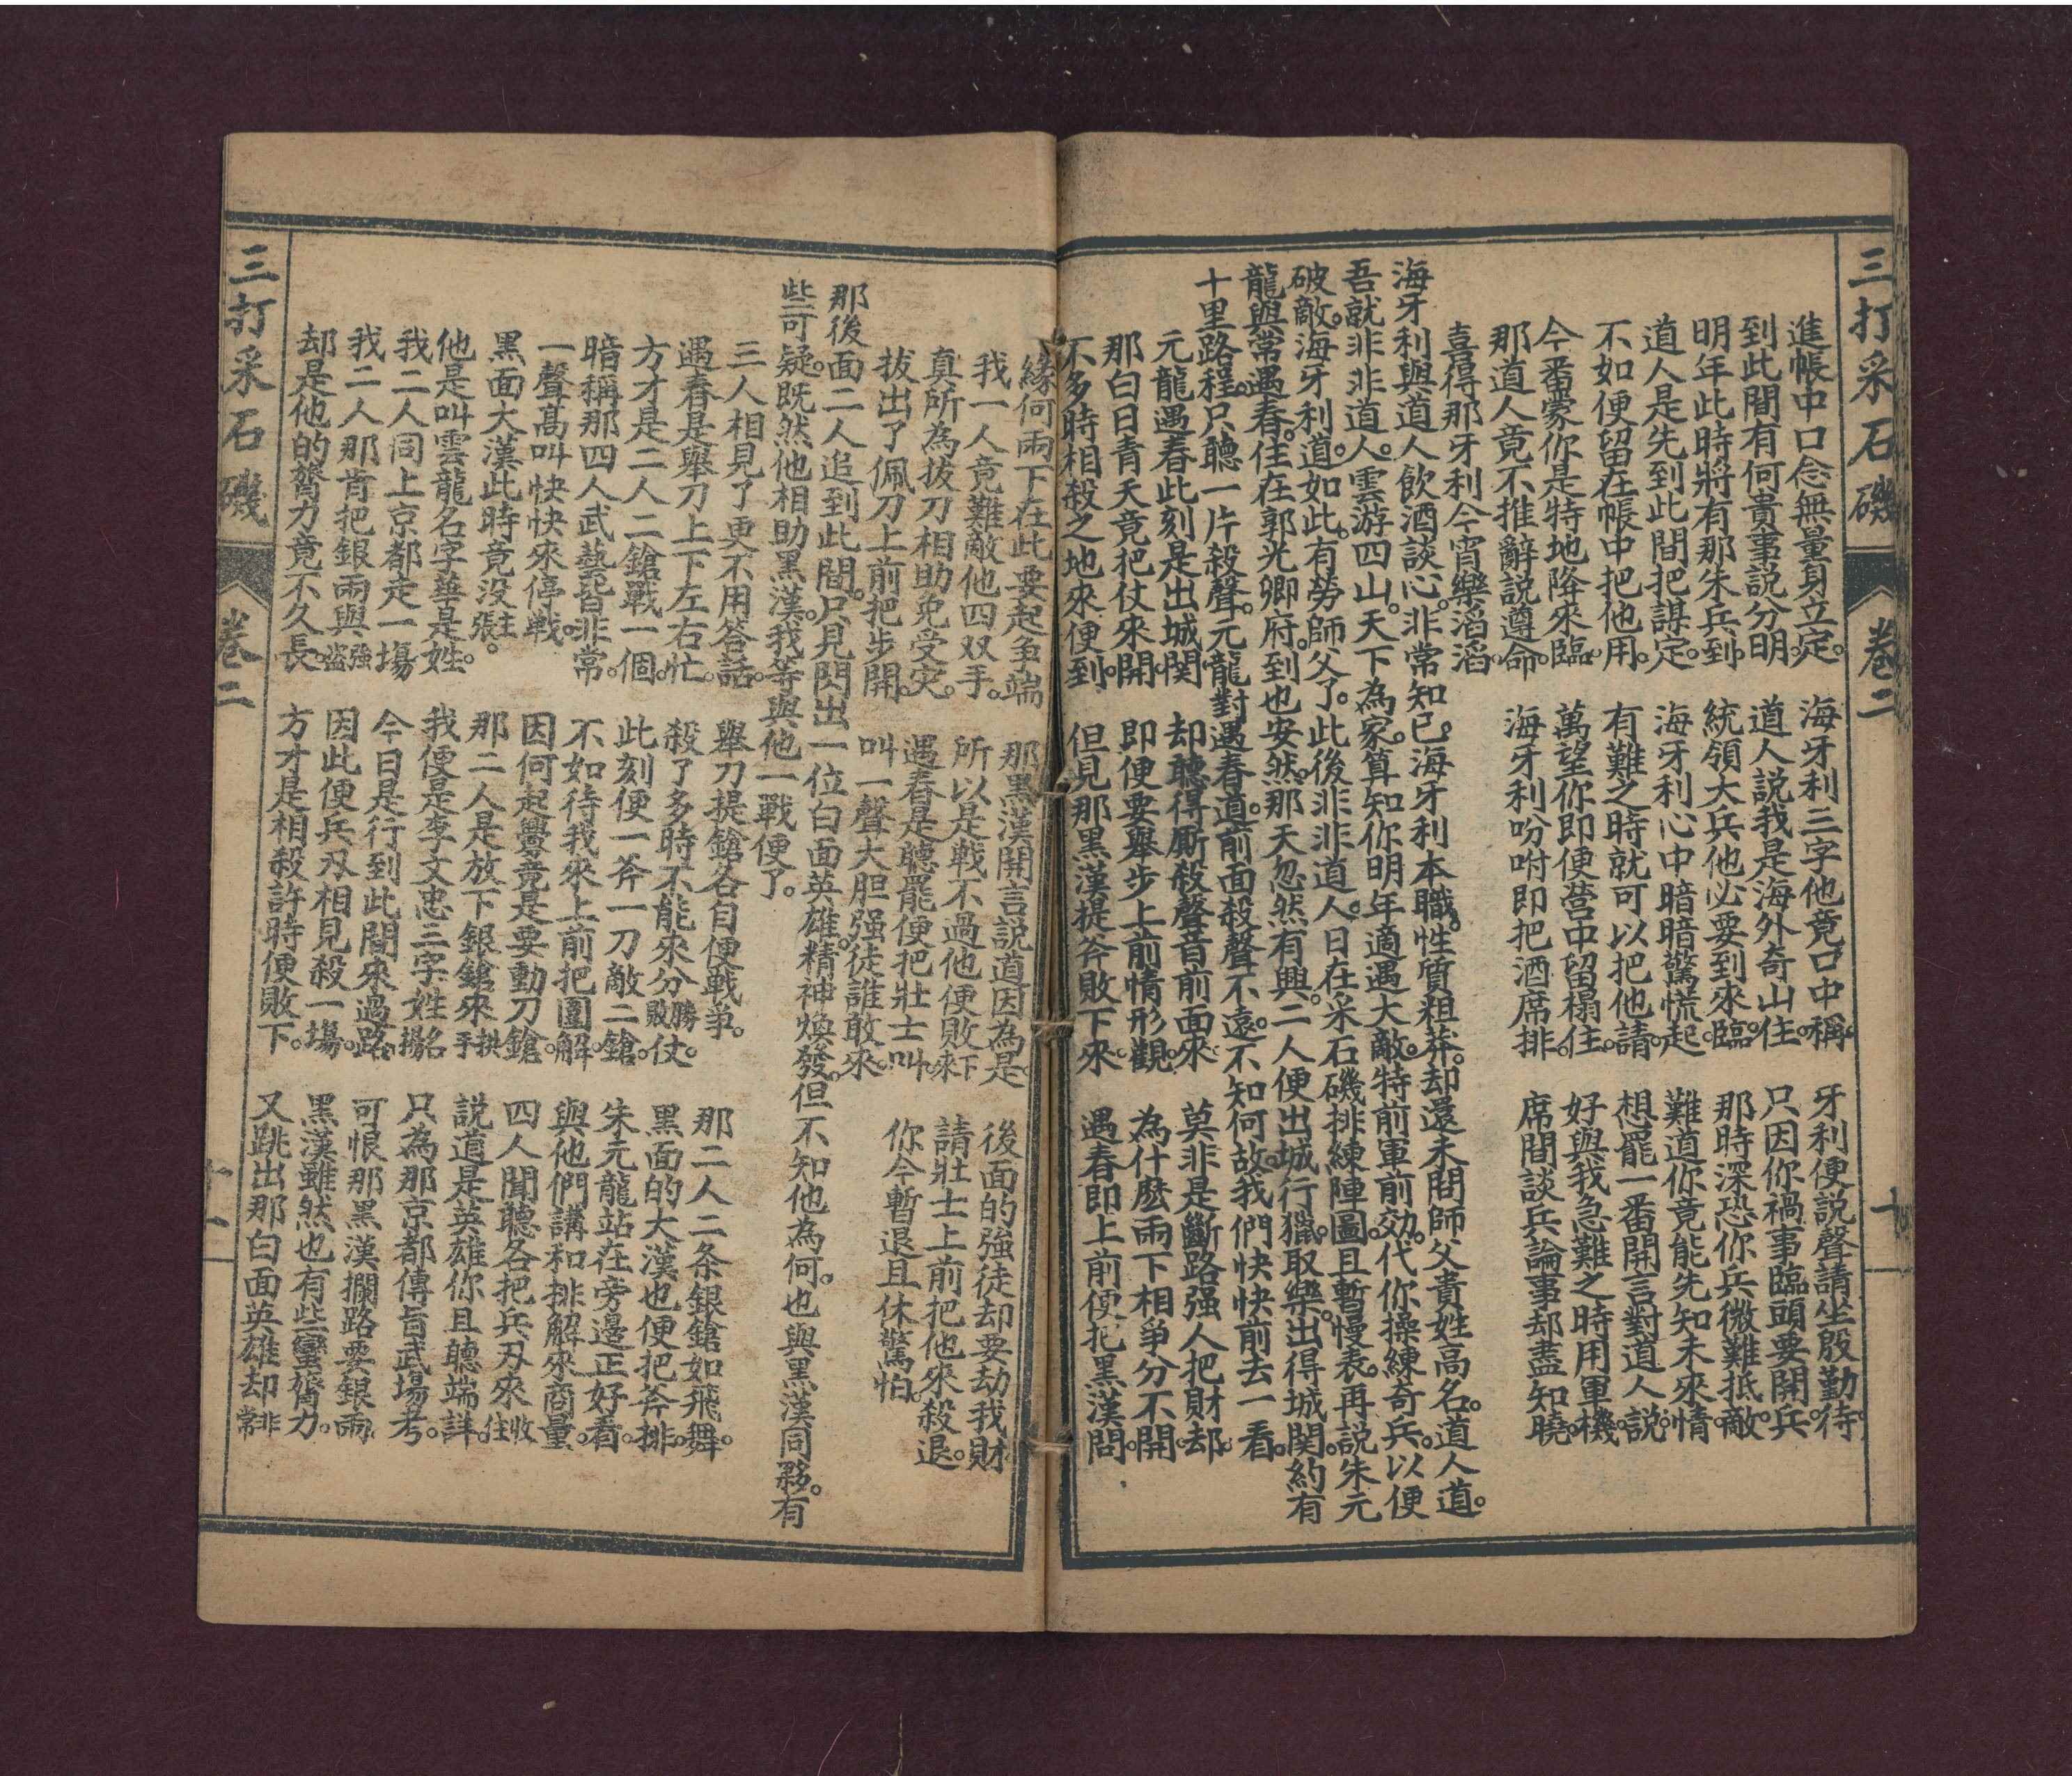 三打采石磯 卷二 十
進帳中口念無量身立定。 海牙利三字他竟口中稱 牙利便説聲請坐殷勤待。
到此間有何貴事説分明。 道人説我是海外奇山住。 只因你禍事臨頭要開兵。
明年此時將有那朱兵到。 統領大兵他必要到來臨。 那時深恐你兵微難抵敵。
道人是先到此間把謀定。 海牙利心中暗暗驚慌起。 難道你竟能先知未來情。
不如便留在帳中把他用。 有難之時就可以把他請。 想罷一番開言對道人説。
今番蒙你是特地降來臨。 萬望你即便營中留榻住。 好與我急難之時用軍機。
那道人竟不推辭説遵命。 海牙利吩咐即把酒席排。 席間談兵論事却盡知曉。
喜得那牙利今宵樂滔滔。
海牙利與道人飲酒談心。非常知已。海牙利本職。性質粗莽。却還未問師父貴姓高名。道人道。
吾就非非道人。雲游四山。天下為家。算知你明年適遇大敵。特前軍前効。代你操練奇兵。以便
破敵。海牙利道。如此。有勞師父了。此後非非道人。日在采石磯排練陣圖。且暫慢表。再説朱元
龍與常遇春。住在郭光卿府。到也安然。那天忽然有興。二人便出城行獵。取樂。出得城関。約有
十里路程。只聽一片殺聲。元龍對遇春道。前面殺聲不遠。不知何故。我們快快前去一看。
元龍遇春此刻是出城関 却聽得厮殺聲音前面來 莫非是斷路强人把財却
那白日青天竟把仗來開 即便要舉步上前情形觀。 為什麽兩下相爭分不開
不多時相殺之地來便到。 但見那黑漢提斧敗下來 遇春即上前便把黑漢問。
緣何兩下在此要起争端 那黑漢開言説道因為是 後面的強徒却要劫我財
我一人竟難敵他四双手。 所以是戰不過他便敗下來 請壯士上前把他來殺退。
真所為拔刀相助免受灾。 遇春是聽罷便把壯士叫。 你今暫退且休驚怕。
拔出了佩刀上前把步開。 叫一聲大胆强徒誰敢來。
那後面二人追到此間。只見閃出一位白面英雄。精神煥發。但不知他為何。也與黑漢同夥。有
些可疑。既然他相助黑漢。我等與他一戰便了。
三人相見了更不用答話。 舉刀提鎗各自便戰爭。 那二人二条銀鎗如飛舞。
遇春是舉刀上下左右忙。 殺了多時不能來分勝敗仗。 黑面的大漢也便把斧排。
方才是二人二鎗戰一個。 此刻便一斧一刀敵二鎗。 朱元龍站在旁邊正好看。
暗稱那四人武藝皆非常。 不如待我來上前把圍解 與他們講和排解來商量。
一聲高叫快快來停戰。 因何起釁竟是要動刀鎗。 四人聞聽各把兵刃來收住
黑面大漢此時竟没主張。 那二人是放下銀鎗來拱手 説道是英雄你且聽端詳。
他是叫雲龍名字華是姓。 我便是李文忠三字姓名揚 只為那京都傳旨武場考。
我二人同上京都走一塲 今日是行到此間來過路 可恨那黑漢攔路要銀兩
我二人那肯把銀兩與强盗 因此便兵刃相見殺一塲。 黑漢雖然也有些蠻膂力。
却是他的膂力竟不久長。 方才是相殺許時便敗下。 又跳出那白面英雄却非常
三打采石磯 卷二 十一